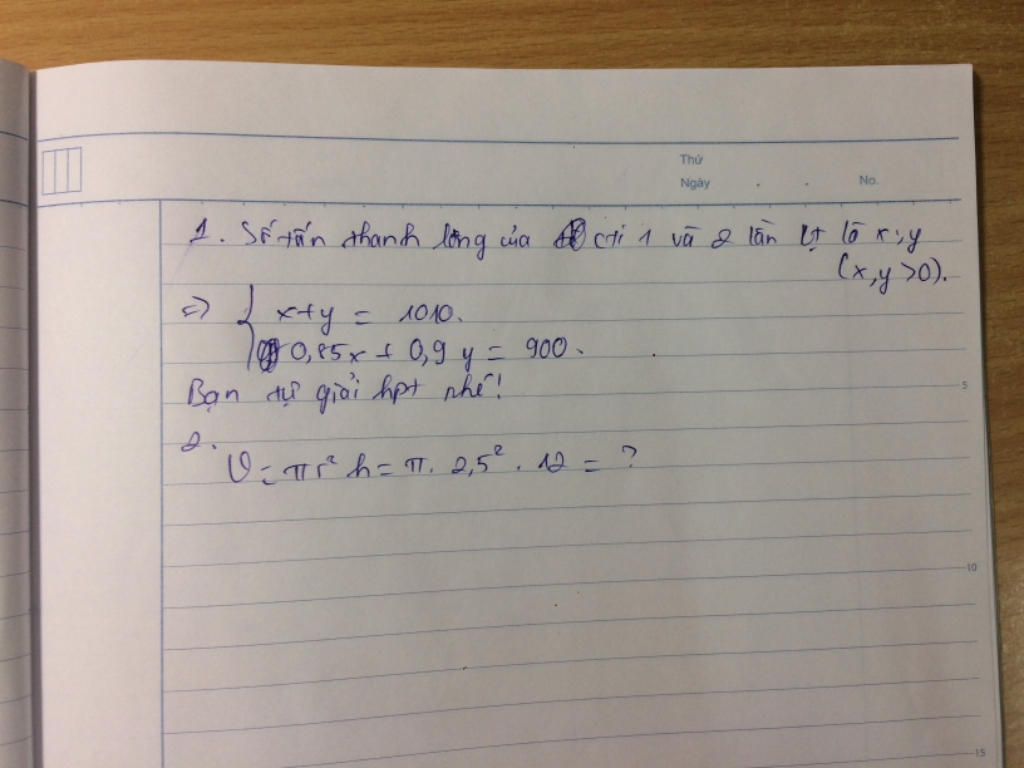 Thứ
Ngày . . No.
1. Số tấn thanh long của cti 1 và 2 lần lt là x; y
(x, y >0).
=> { x+y = 1010.
0,85x + 0,9 y = 900.
Bạn tự giải hpt nhé!
5
2.
V = πr² h = π. 2,5² . 12 = ?
10
15